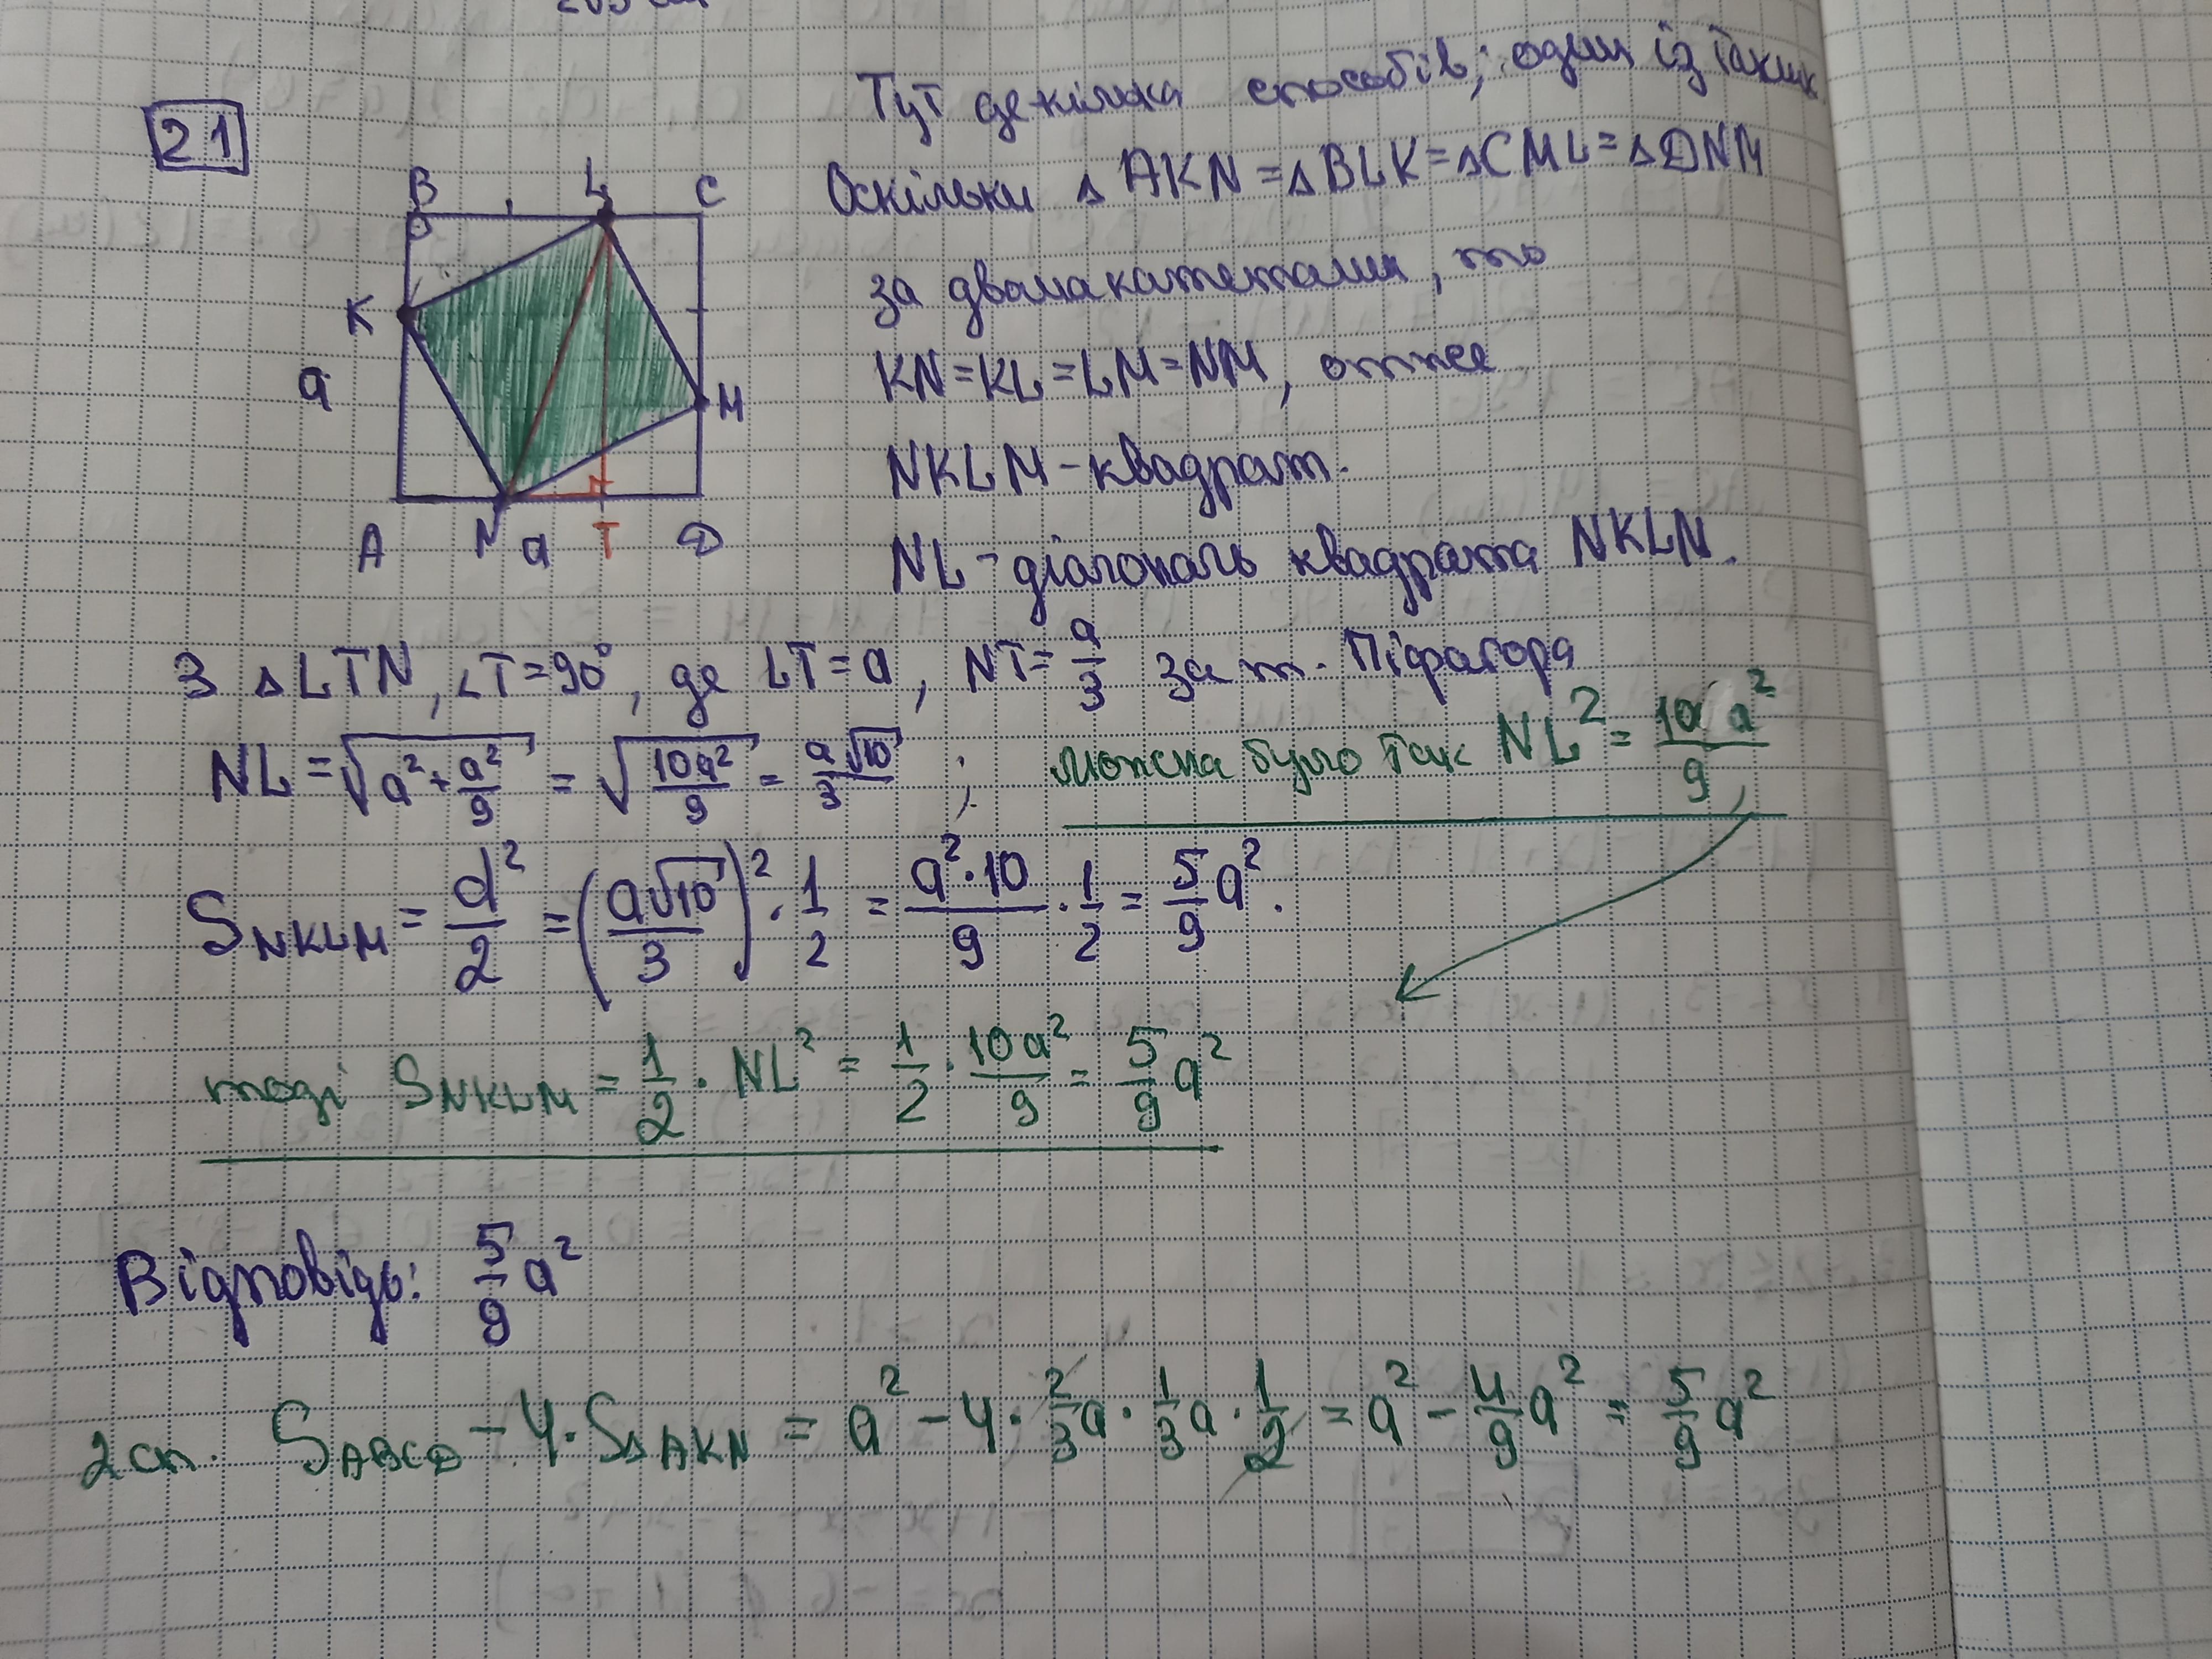 21
Тут декілька способів; один із таких
Оскільки △ AKN = △BLK = △CML = △DNM
за двома катетами, то
KN = KL = LM = NM, отже
NKLM - квадрат.
NL - діагональ квадрата NKLN.
B L C
K
a
M
A N a T D
З △LTN, ∠T=90°, де LT = a, NT = a/3 за т. Піфагора
NL = √(a² + a²/9) = √(10a²/9) = a√10/3 ; можна було так NL² = 10a²/9
S NKLM = d²/2 = (a√10/3)² · 1/2 = a²·10/9 · 1/2 = 5/9 a².
тоді S NKLM = 1/2 · NL² = 1/2 · 10a²/9 = 5/9 a²
Відповідь: 5/9 a²
2 сп. S ABCD - 4·S△AKN = a² - 4 · 2/3 a · 1/3 a · 1/2 = a² - 4/9 a² = 5/9 a²